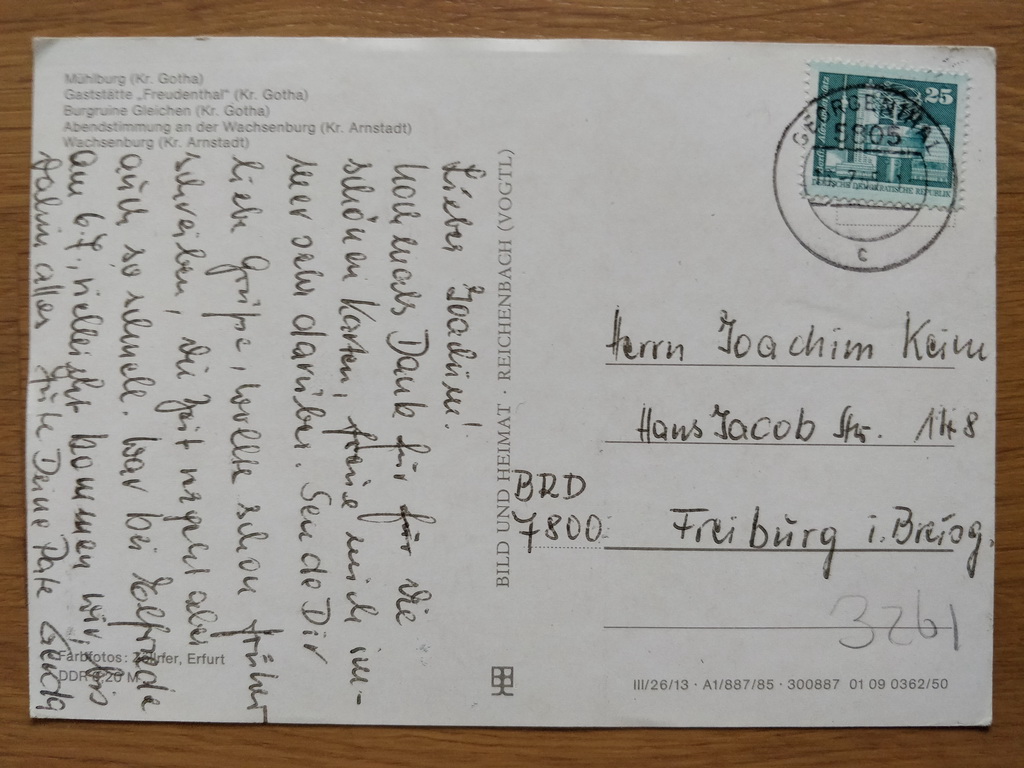 Mühlburg (Kr. Gotha)
Gaststätte „Freudenthal" (Kr. Gotha)
Burgruine Gleichen (Kr. Gotha)
Abendstimmung an der Wachsenburg (Kr. Arnstadt)
Wachsenburg (Kr. Arnstadt)
Lieber Joachim!
Nochmals Dank für für die
schönen Karten, freue mich im-
mer sehr darüber. Sende Dir
liebe Grüße, wollte schon früher
schreiben, die Zeit vergeht aber
auch so schnell. War bei Elfriede
am 6.7., vielleicht kommen wir, bis
dahin alles Gute Deine Pate
Farbfotos: Erfurt
DDR 0,20 M
BILD UND HEIMAT · REICHENBACH (VOGTL)
25
DEUTSCHE DEMOKRATISCHE REPUBLIK
GEORGENTHAL
5805
c
Herrn Joachim Keim
Hans Jacob Str. 148
BRD
7800 Freiburg i. Breisg.
3261
III/26/13 · A1/887/85 · 300887 01 09 0362/50